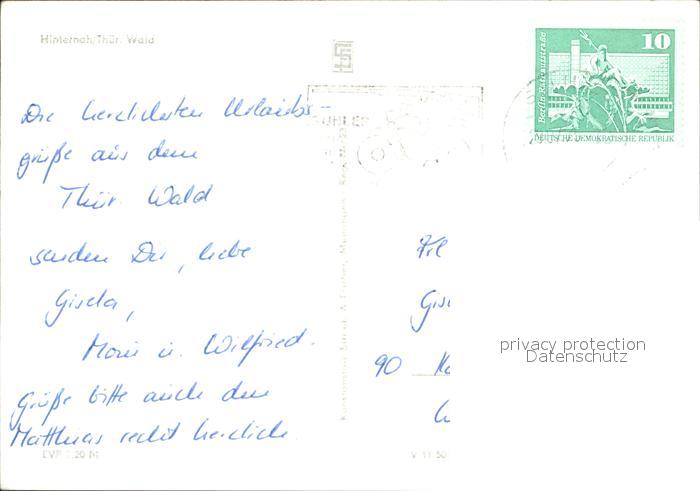 Hinternah/Thür. Wald
10
Berlin Rathausstraße
DEUTSCHE DEMOKRATISCHE REPUBLIK
Die herzlichsten Urlaubs-
grüße aus dem
Thür. Wald
senden Dir, liebe
Gisela,
Moni u. Wilfried.
Grüße bitte auch den
Matthias recht herzlich.
Frl
Gis
90
EVP 0,20 M
V 11 50
privacy protection
Datenschutz